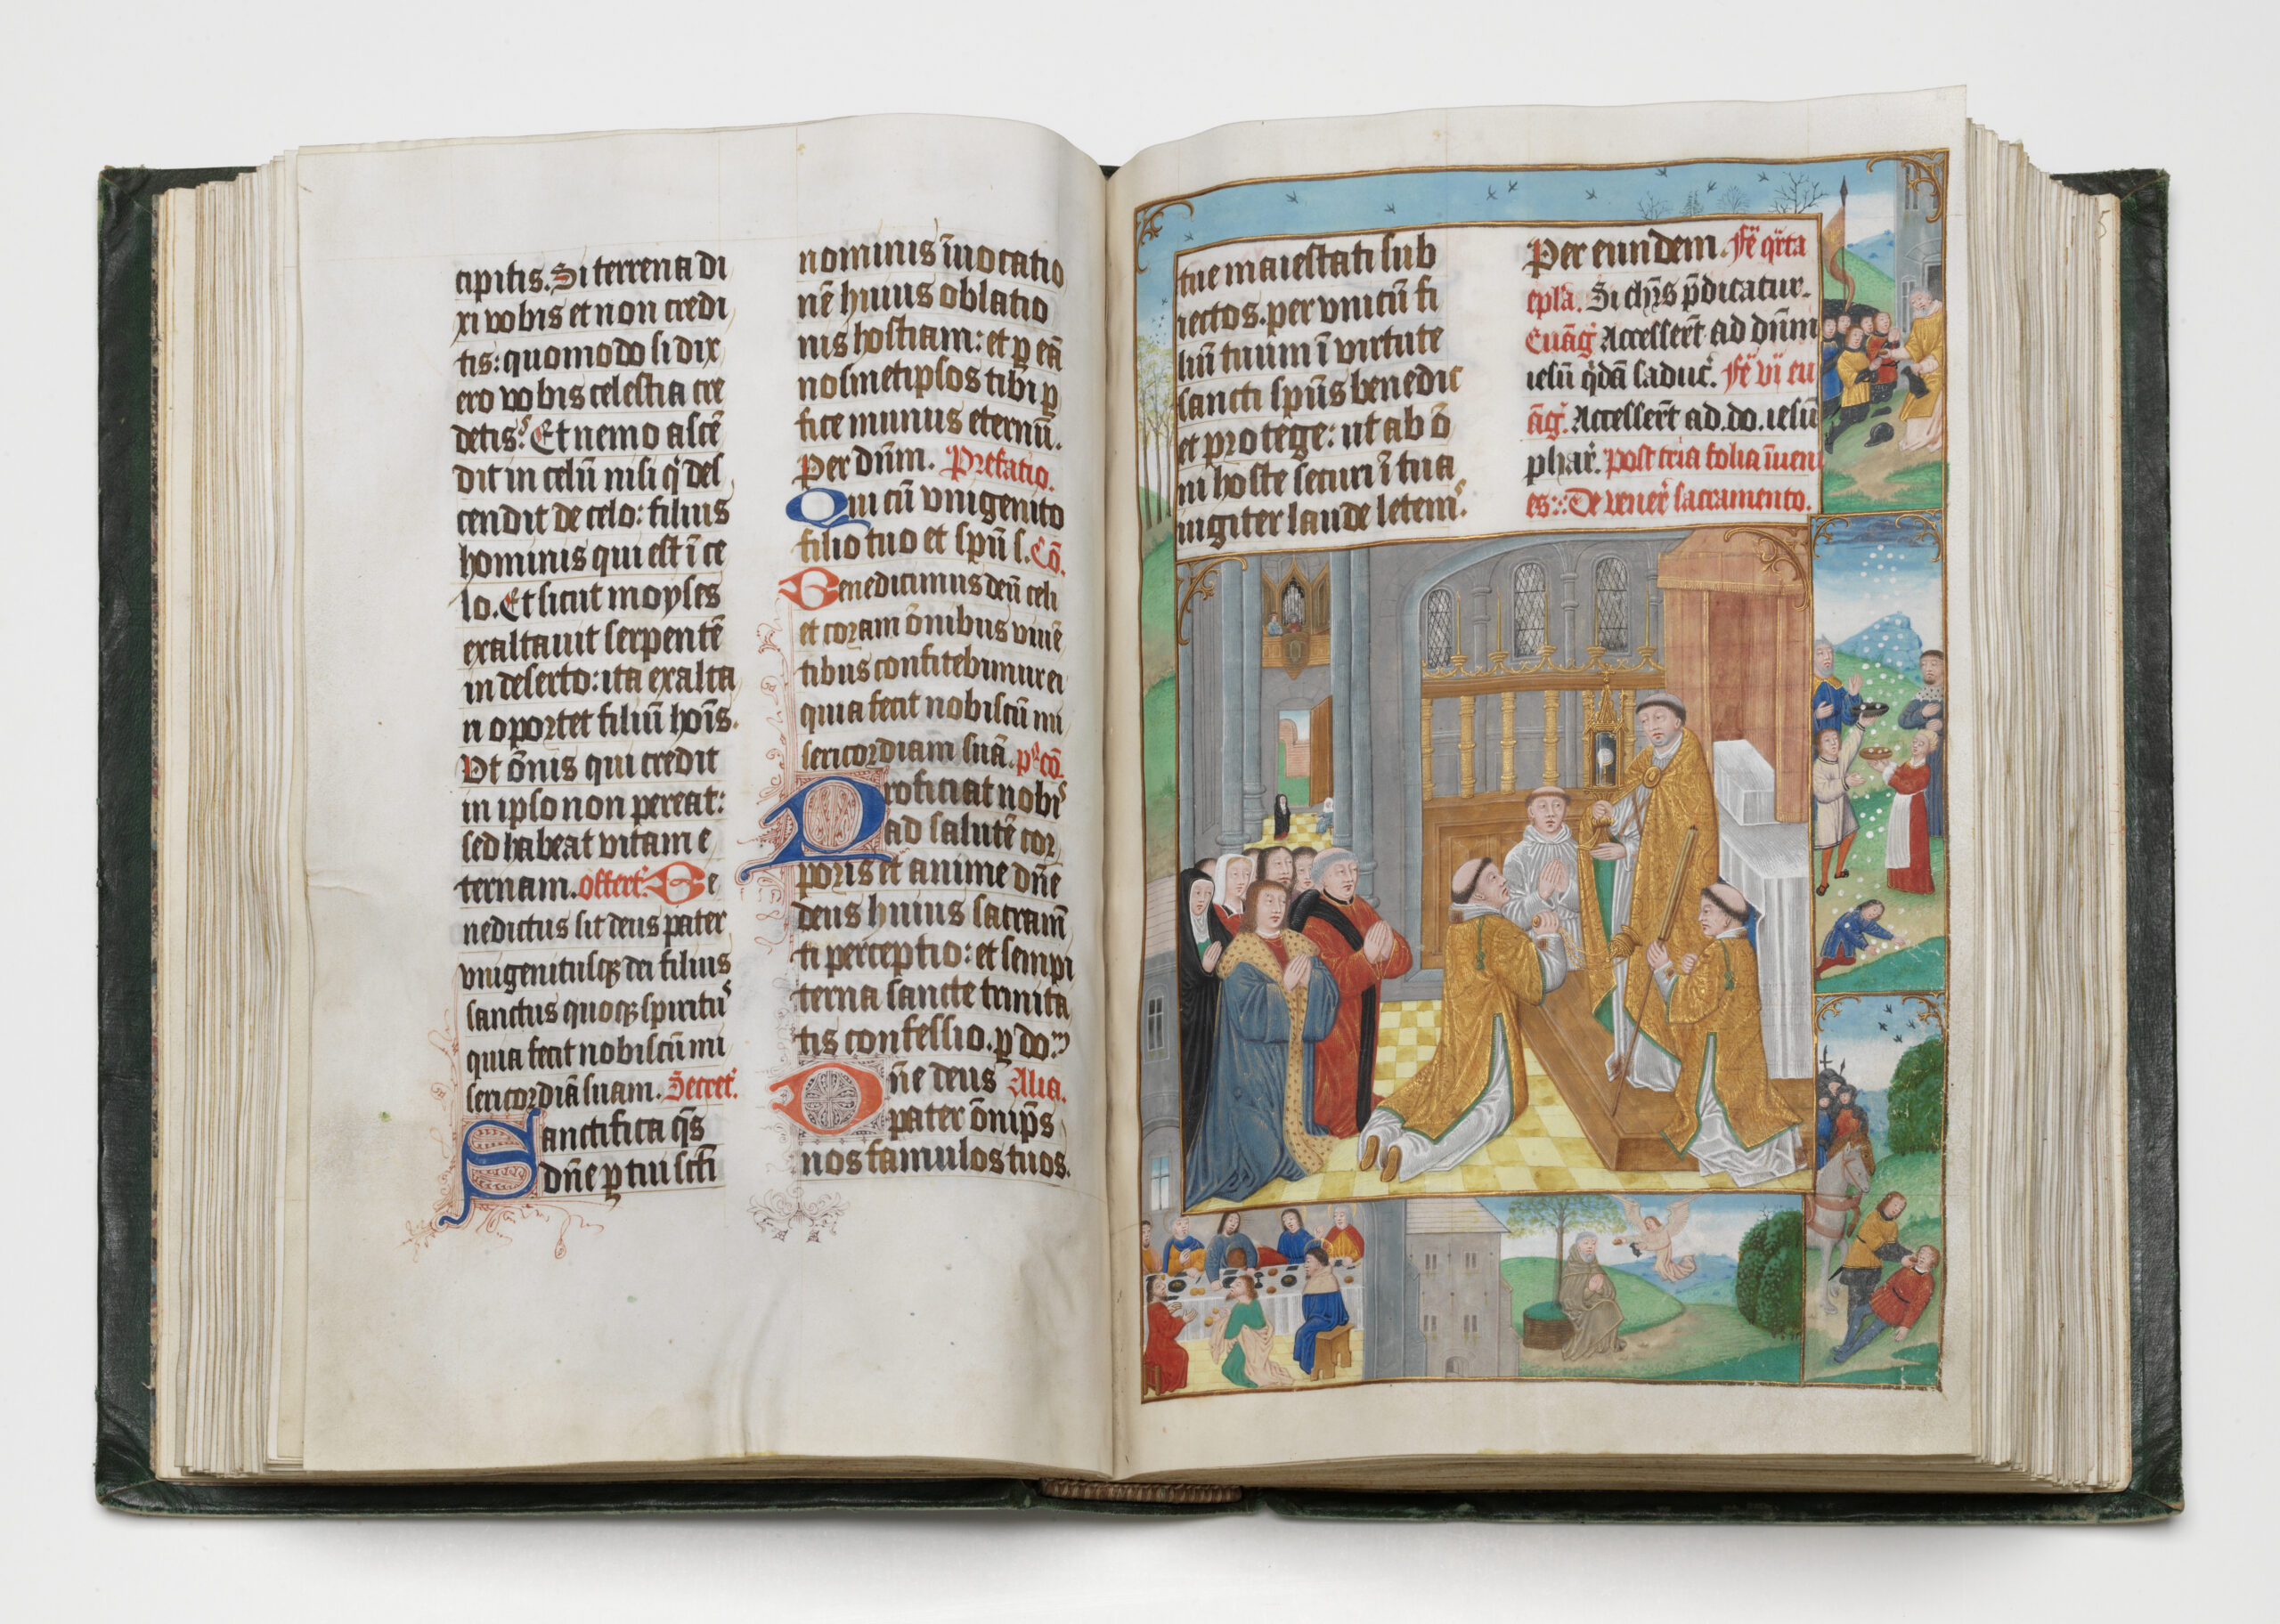 cipitis. Si terrena di
xi vobis et non credi
tis: quomodo si dix
ero vobis celestia cre
detis? Et nemo ascē
dit in celū nisi q̇ des
cendit de celo: filius
hominis qui est ī ce
lo. Et sicut moyses
exaltauit serpentē
in deserto: ita exalta
ri oportet filiū hoīs.
Vt ōnis qui credit
in ipso non pereat:
sed habeat vitam e
ternam. Offert̄. Be
nedictus sit deus pater
vnigenitusqꝫ dei filius
sanctus quoqꝫ spiritus
quia fecit nobiscū mi
sericordiā suam. Secret̄.
Sanctifica q̄s
dn̄e ꝑ tui sctī
nominis īuocatio
nē huius oblatio
nis hostiam: et ꝑ eā
nosmetipsos tibi ꝑ
fice munus eternū.
Per dn̄m. Prefatio.
Qui cū vnigenito
filio tuo et spū s. Cō.
Benedicimus deū celi
et coram ōnibus viuē
tibus confitebimur ei
quia fecit nobiscū mi
sericordiam suā. p̄ cō.
Proficiat nobis
ad salutē cor
poris et anime dn̄e
deus huius sacramē
ti perceptio: et sempi
terna sancte trinita
tis confessio. ꝑ do
Dn̄e deus Alia.
pater ōnip̄s
nos famulos tuos.
tue maiestati sub
iectos. per vnicū fi
liū tuum ī virtute
sancti sp̄us benedic
et protege: ut ab ō
ni hoste securi ī tua
iugiter laude letemur.
Per eundem. Fē qrta
epl̄a. Si chr̄s p̄dicatur.
Euāḡ Accesserūt ad dn̄m
iesū q̇dā saduc̄. Fē vi eu
āḡ. Accesserūt ad. do. iesū
phar̄. post tria folia īuen
es: De vener̄ sacramento.
5